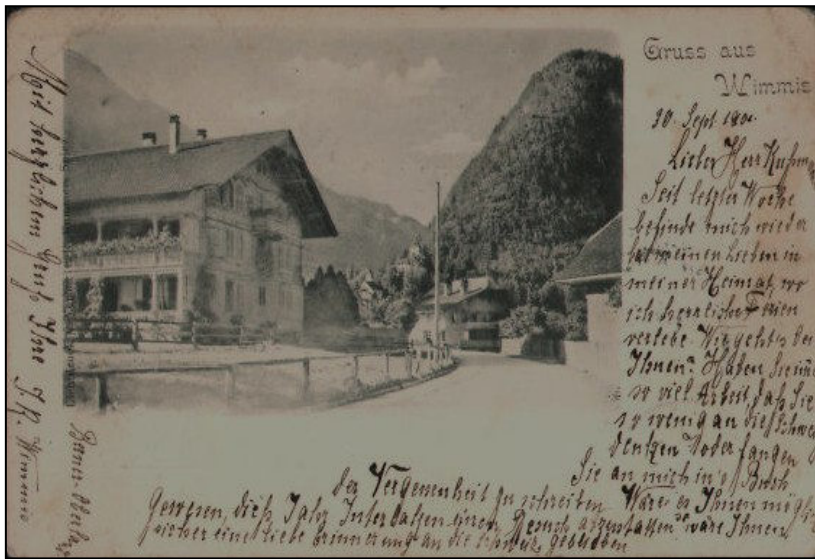 Gruss aus
Wimmis
30. Sept. 190
Lieber Herr Kuhn
Seit letzter Woche
befinde mich wieder
bei meinen Lieben in
meiner Heimat, wo
ich herrliche Ferien
verlebe. Wie geht's bei
Ihnen? Haben Sie imm
so viel Arbeit, daß Sie
so wenig an die Schwe
denken oder fangen
Sie an mich in's Buch
der Vergessenheit zu schreiben. Wäre es Ihnen mögli
gewesen, dieß Jahr Interlaken einen Besuch abzustatten, wäre Ihnen
sicher eine liebe Erinnerung an die Schweiz geblieben
Mit herzlichem Gruß Ihre J. R. Wimmis